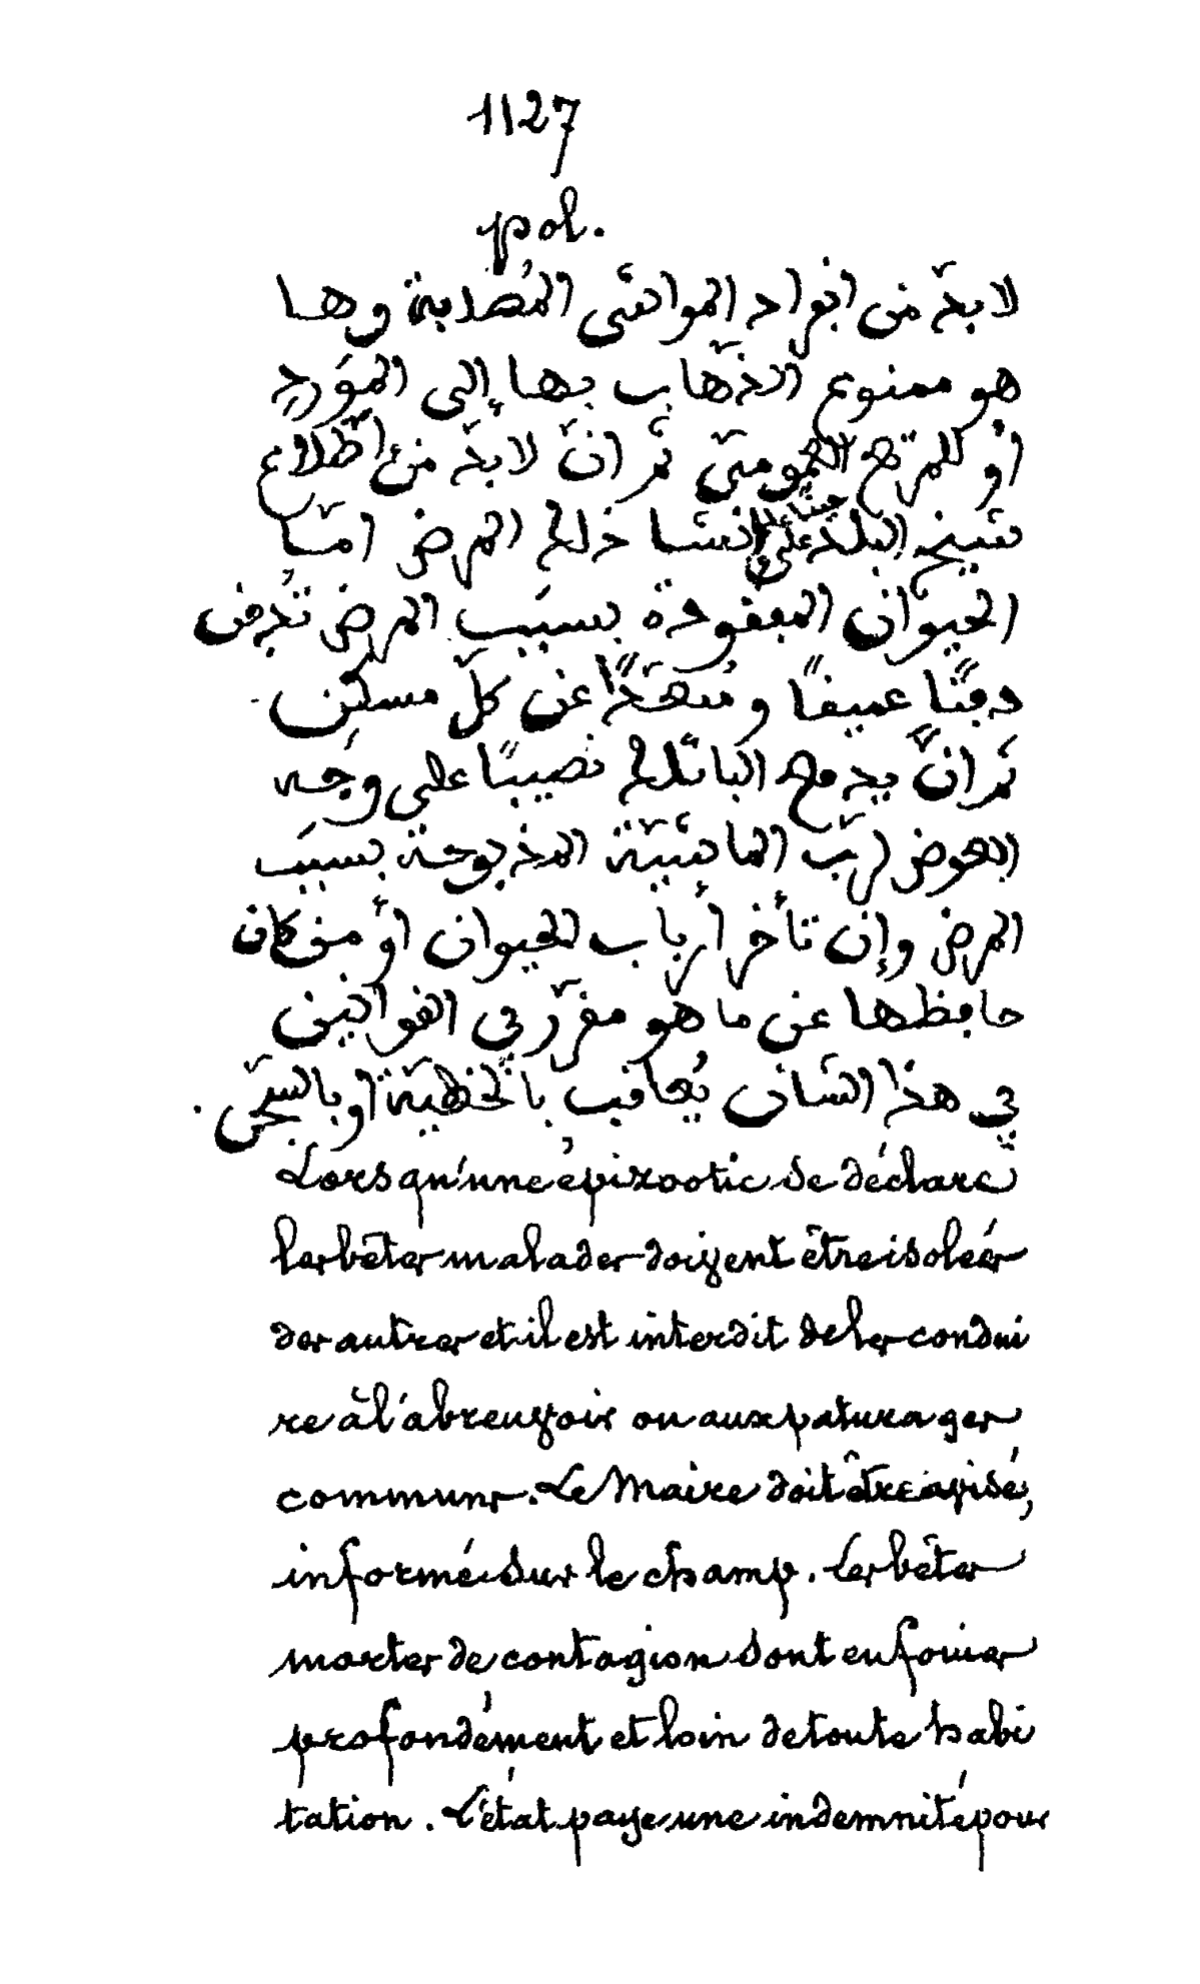 1127
pol.
لا بدّ من انفراد المواشي المُصابة وها
هو ممنوع الذّهاب بها إلى المَورد
أو للمرتع العمومي ثمّ انّ لا بدّ من اطّلاع
شيخ البلد على إنشا ذلك المرض امّا
الحيوان المفقودة بسبب المرض تُدفن
دفنًا عميقًا و عن كلّ مسكن
ثمّ انّ يدفع البائلك نصيبًا على وجه
العوض لربّ الماشيّة المذبوحة بسبب
المرض وإن تأخر أرباب الحيوان أو من كان
حافظها عن ما هو مقرّر في القوانين
في هذا الشان يُعاقب بالخطيّة او بالسّجن.
Lorsqu'une épizootie se déclare
les bêtes malades doivent être isolées
des autres et il est interdit de les condui
re à l'abreuvoir ou aux paturages
communs. Le Maire doit être avisé,
informé sur le champ. Les bêtes
mortes de contagion sont enfouies
profondément et loin de toute habi
tation. L'état paye une indemnité pour